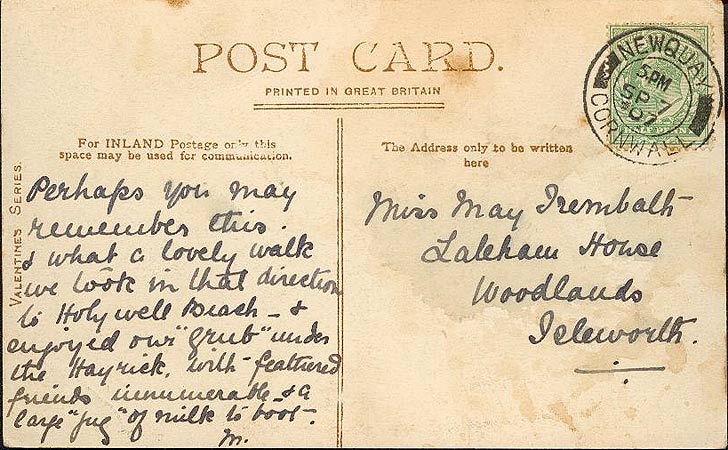 POST CARD.
PRINTED IN GREAT BRITAIN
NEWQUAY
5.PM
SP 7
07
CORNWALL
For INLAND Postage only this
space may be used for communication.
The Address only to be written
here
VALENTINE'S SERIES.
Perhaps you may
remember this.
& what a lovely walk
we took in that direction
to Holywell Beach – &
enjoyed our "grub" under
the Hayrick, with feathered
friends innumerable & a
large "jug" of milk to boot.
M.
Miss May Trembath
Laleham House
Woodlands
Isleworth.